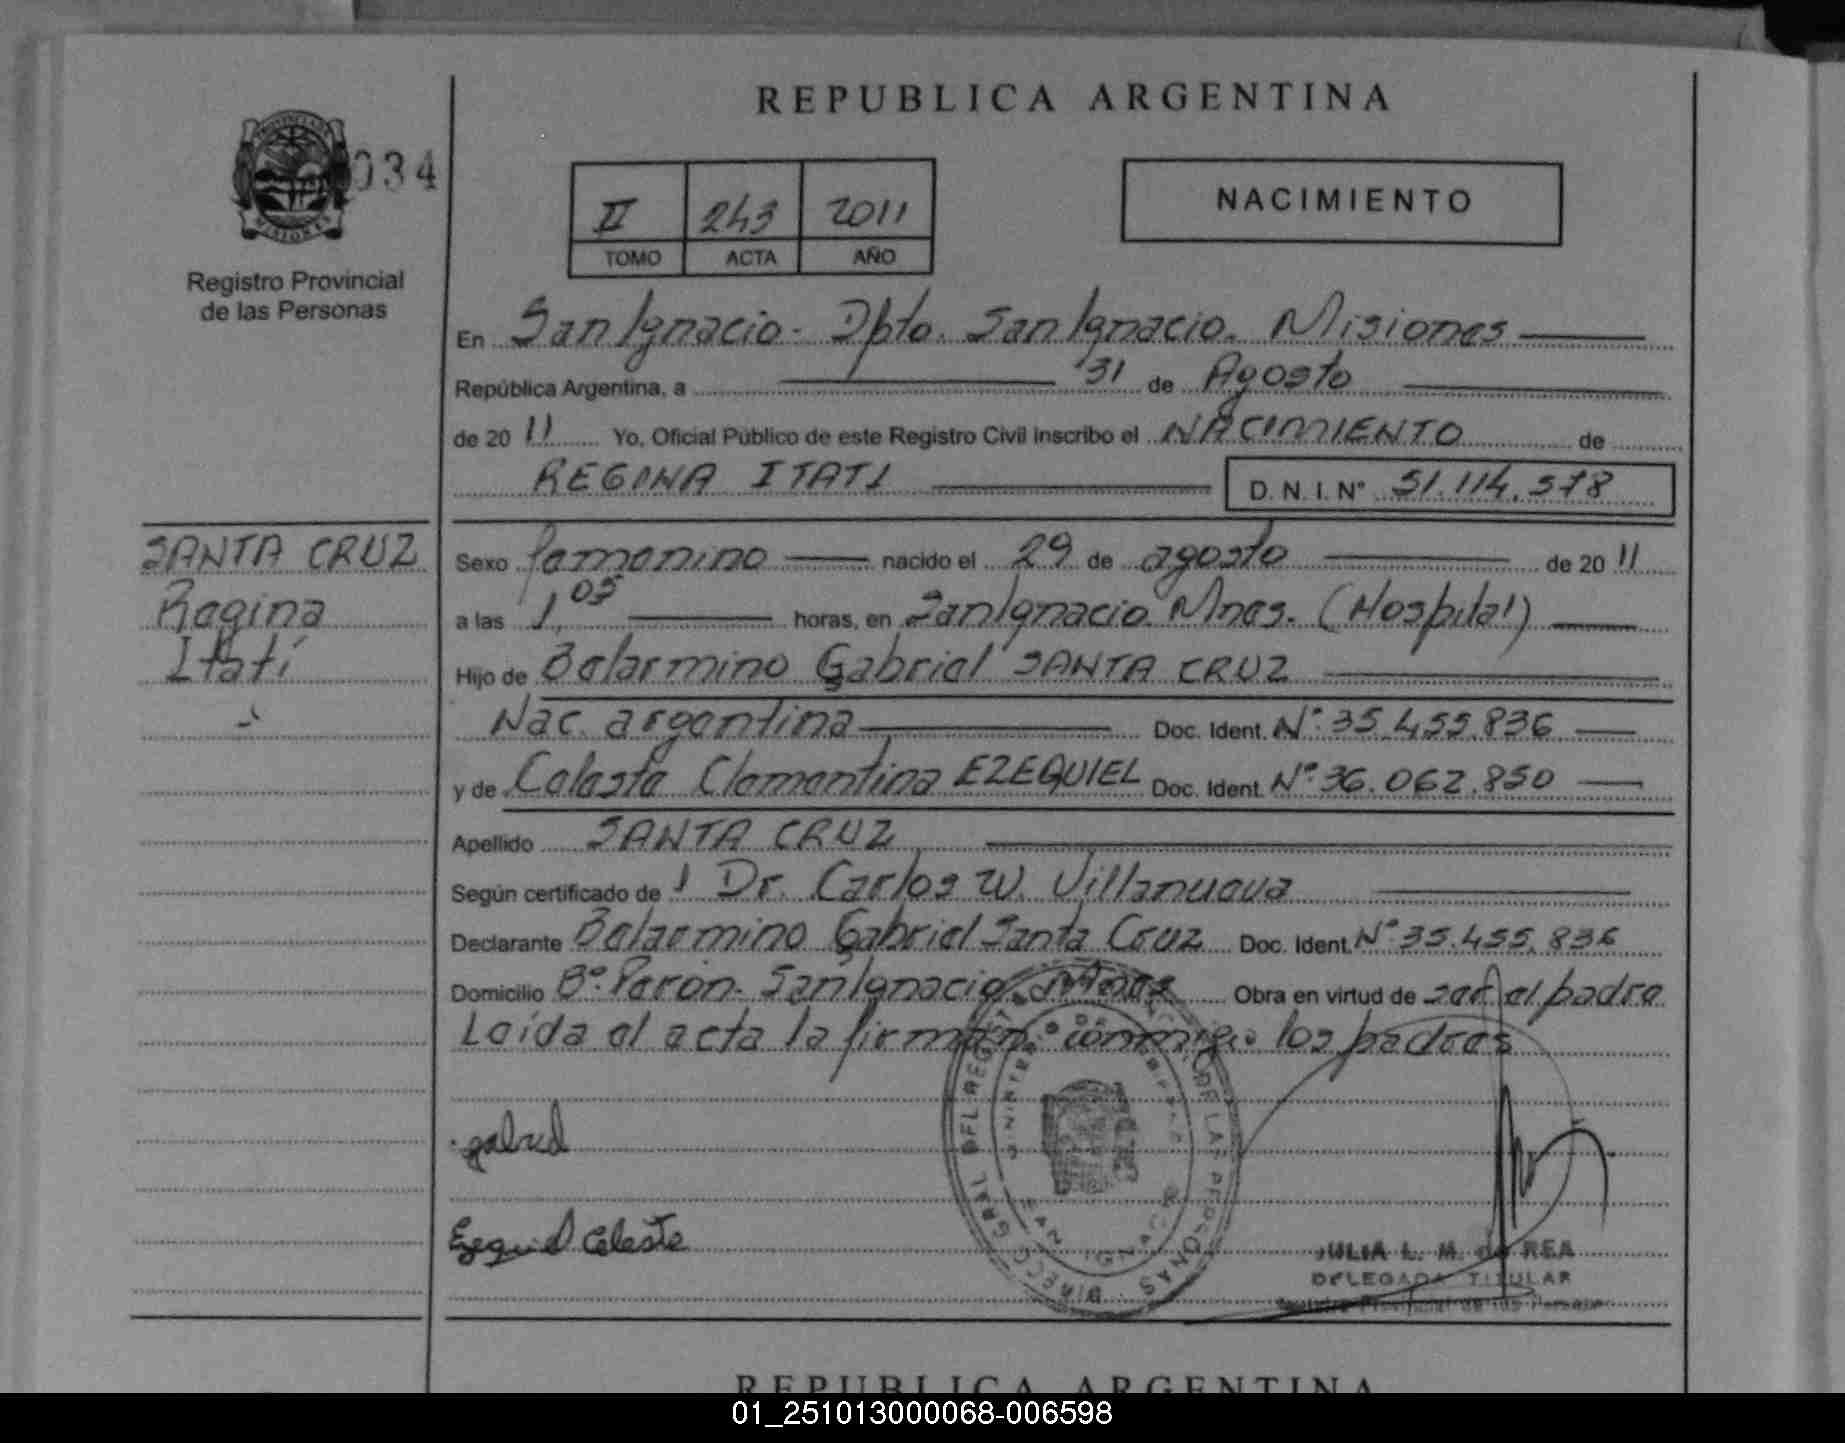 REPUBLICA ARGENTINA
034
II 243 2011
TOMO ACTA AÑO
NACIMIENTO
Registro Provincial
de las Personas
En San Ignacio - Dpto. San Ignacio. Misiones
República Argentina, a 31 de Agosto
de 20 11 Yo, Oficial Público de este Registro Civil inscribo el NACIMIENTO de
REGINA ITATI D. N. I. Nº 51.114.578
SANTA CRUZ
Regina
Itatí
Sexo femenino nacido el 29 de agosto de 20 11
a las 1,05 horas, en San Ignacio Mnes. (Hospital)
Hijo de Belarmino Gabriel SANTA CRUZ
Nac. argentina Doc. Ident. Nº 35.455.836
y de Celeste Clementina EZEQUIEL Doc. Ident. Nº 36.062.850
Apellido SANTA CRUZ
Según certificado de l Dr. Carlos W. Villanueva
Declarante Belarmino Gabriel Santa Cruz Doc. Ident. Nº 35.455.836
Domicilio Bº Perón - San Ignacio Mnes Obra en virtud de ser el padre
Leída el acta la firman conmigo los padres
gabriel
Ezequiel Celeste
JULIA L. M. de REA
DELEGADA TITULAR
Registro Provincial de las Personas
REPUBLICA ARGENTINA
01_251013000068-006598